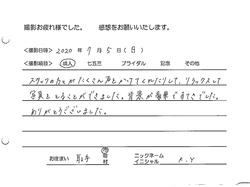 撮影お疲れ様でした。　感想をお願いいたします。
<撮影日時> 2020 年 7 月 5 日 ( 日 )
<撮影組様> 成人 七五三 ブライダル 記念 その他
スタッフの方々がたくさん声をかけてくれたりして、リラックスして
写真をとることができました。背景が豪華ですてきでした。
ありがとうございました。
お住まい 取手 市 町 村 ニックネーム イニシャル A.Y